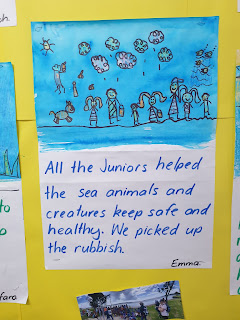 All the Juniors helped
the sea animals and
creatures keep safe and
healthy. We picked up
the rubbish.
Emma.